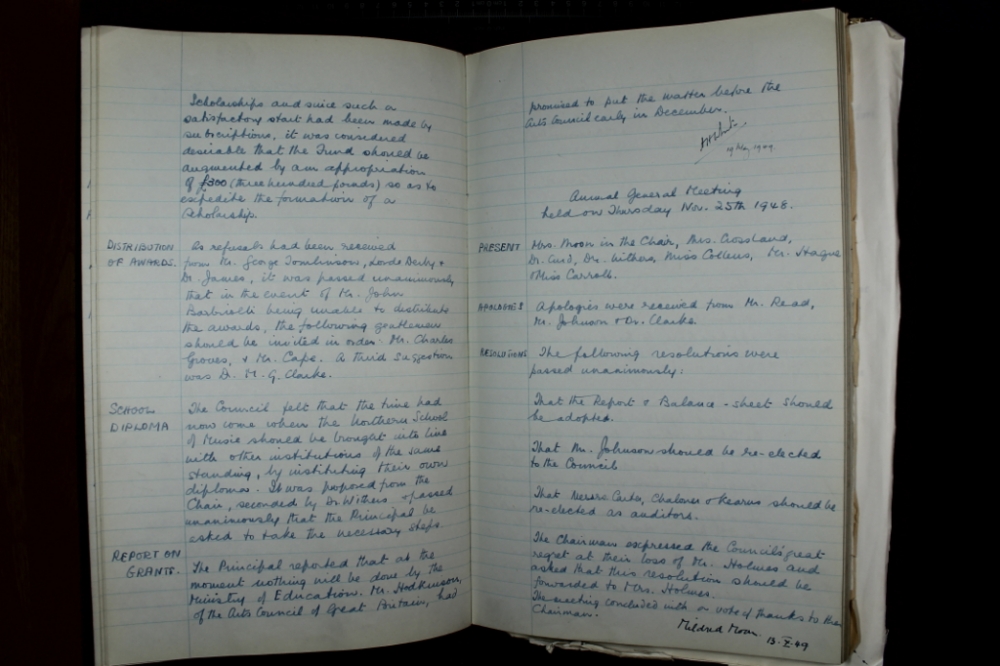 Scholarships and since such a
satisfactory start had been made by
subscriptions, it was considered
desirable that the Fund should be
augmented by an appropriation
of £300 (three hundred pounds) so as to
expedite the formation of a
Scholarship.
DISTRIBUTION OF AWARDS.
As refusals had been received
from Mr. George Tomlinson, Lord Derby &
Dr. James, it was passed unanimously
that in the event of Mr. John
Barbirolli being unable to distribute
the awards, the following gentlemen
should be invited in order. Mr. Charles
Groves, & Mr. Cape. A third suggestion
was D. M. G. Clarke.
SCHOOL DIPLOMA
The Council felt that the time had
now come when the Northern School
of Music should be brought into line
with other institutions of the same
standing, by instituting their own
diploma. It was proposed from the
Chair, seconded by Dr Withers & passed
unanimously that the Principal be
asked to take the necessary steps
REPORT ON GRANTS.
The Principal reported that at the
moment nothing will be done by the
Ministry of Education. Mr. Hodkinson,
of the Arts Council of Great Britain, had
promised to put the matter before the
Arts Council early in December.
19 May 1949
Annual General Meeting
held on Thursday Nov. 25th 1948.
PRESENT
Mrs. Moon in the Chair, Mrs. Crossland,
Dr. Dr. Withers, Miss Collens, Mr. Hague
& Miss Carroll.
APOLOGIES
Apologies were received from Mr. Read,
Mr. Johnson & Dr. Clarke
RESOLUTIONS
The following resolutions were
passed unanimously:
That the Report & Balance-sheet should
be adopted.
That Mr. Johnson should be re-elected
to the Council
That Messrs Carter, Chaloner & Kearns should be
re-elected as auditors.
The Chairman expressed the Council's great
regret at their loss of Mr. Holmes and
asked that this resolution should be
forwarded to Mrs. Holmes.
The meeting concluded with a vote of thanks to the
Chairman.
Mildred Moon.
13. X. 49